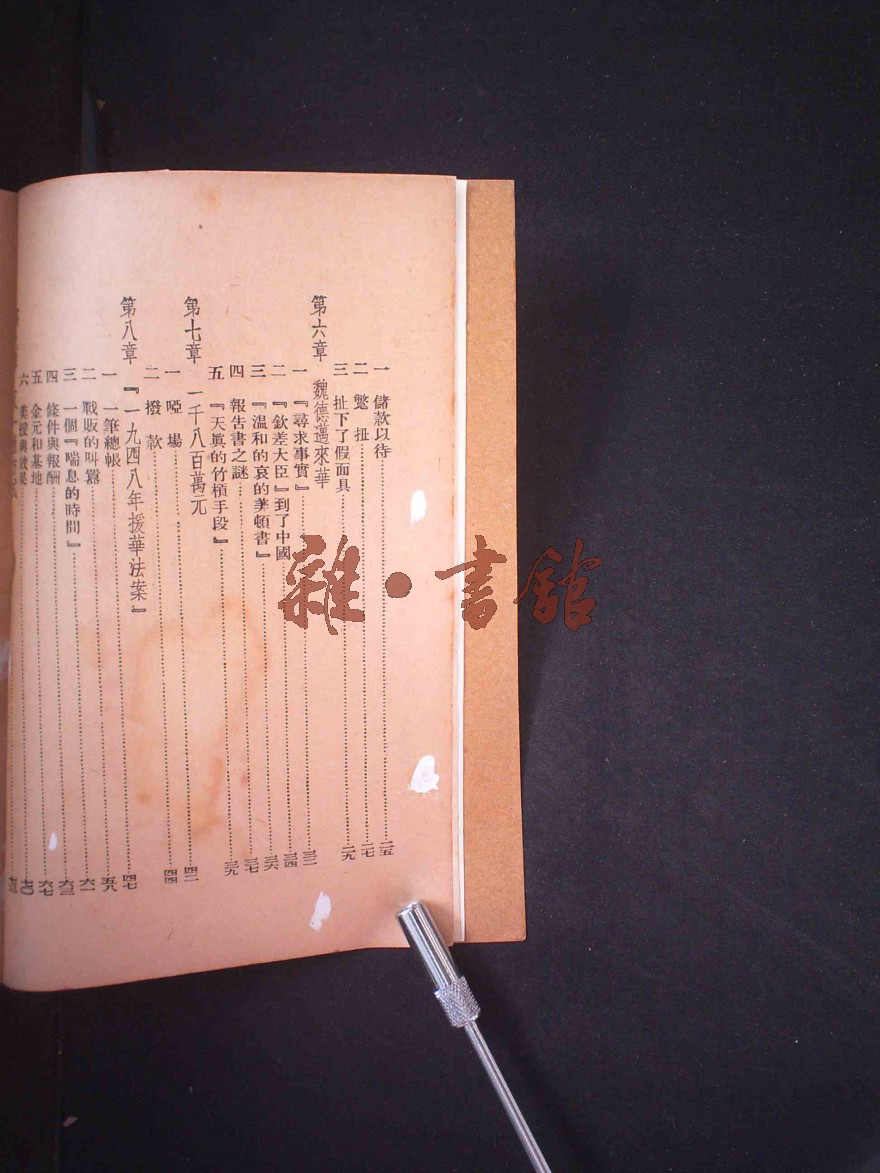 一 儲款以待……二五
二 彆扭……二七
三 扯下了假面具……二九
第六章 魏德邁來華
一 『尋求事實』……三二
二 『欽差大臣』到了中國……三四
三 『溫和的哀的美頓書』……三六
四 報告書之謎……三七
五 『天眞的竹槓手段』……三九
第七章 一千八百萬元
一 啞場……四二
二 撥款……四四
第八章 『一九四八年援華法案』
一 一筆總帳……四七
二 戰販的叫囂……五八
三 一個『喘息的時間』……六一
四 條件與報酬……六三
五 金元和基地……六七
六 美援與效果……七〇
雜·書舘